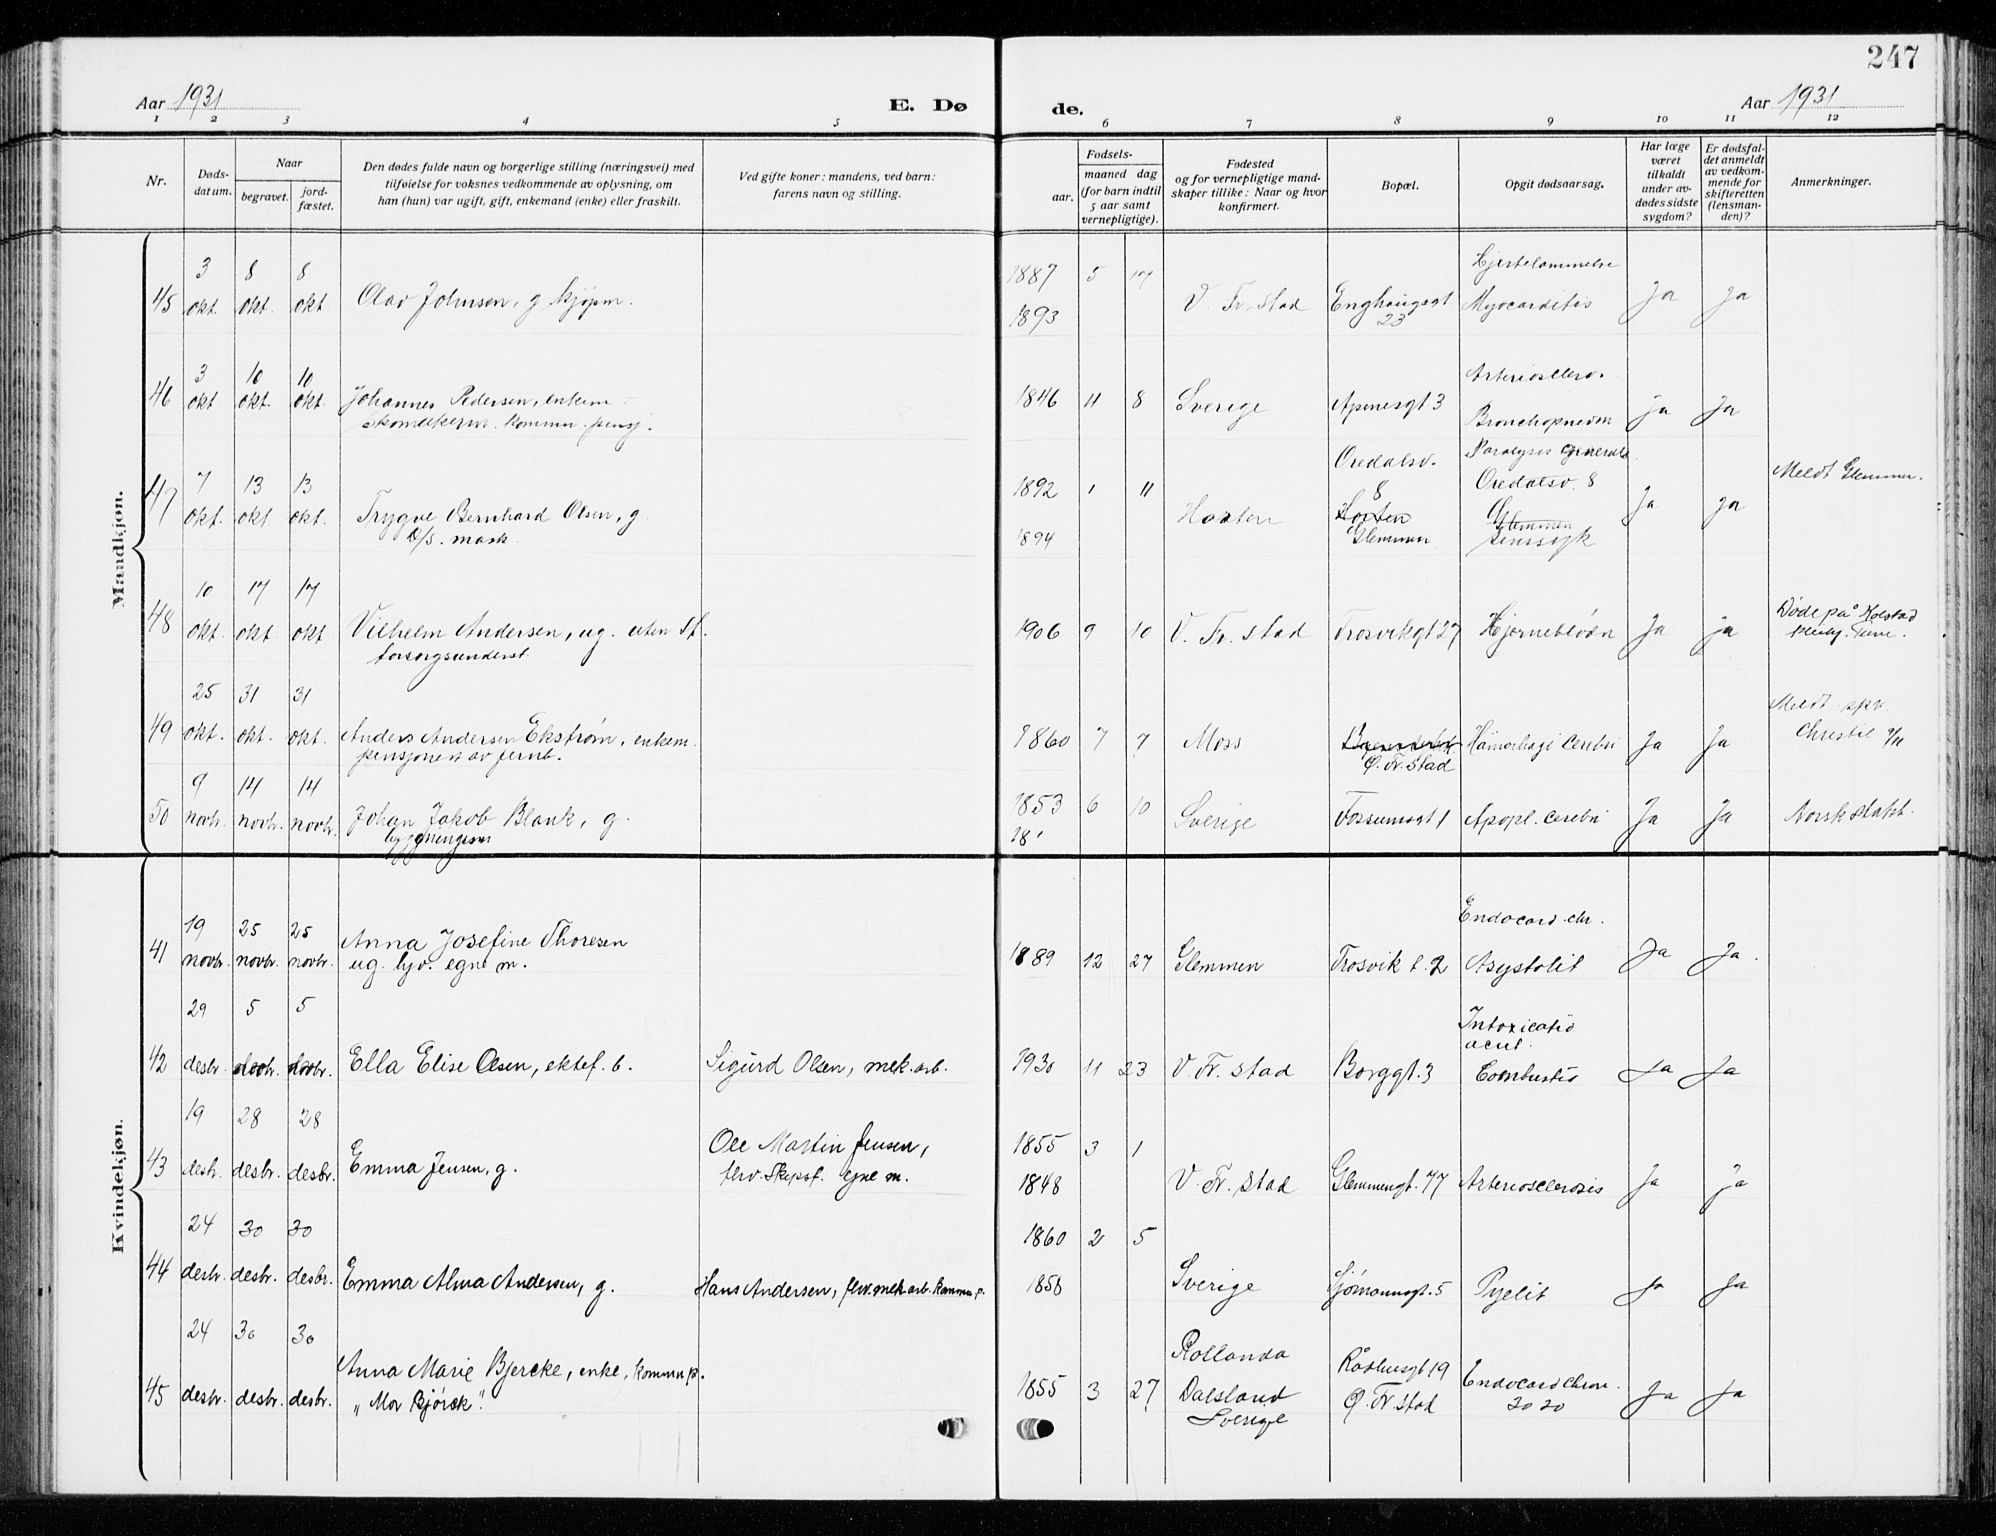 247
Aar 1931
E. Dø
de.
Aar 1931
1 2 3 4 5 6 7 8 9 10 11 12
Nr.
Døds-
datum.
Naar
begravet.
jord-
fæstet.
Den dødes fulde navn og borgerlige stilling (næringsvei) med
tilføielse for voksnes vedkommende av oplysning, om
han (hun) var ugift, gift, enkemand (enke) eller fraskilt.
Ved gifte koner: mandens, ved barn:
farens navn og stilling.
Fødsels-
aar.
maaned dag
(for barn indtil
5 aar samt
vernepligtige).
Fødested
og for vernepligtige mand-
skaper tillike: Naar og hvor
konfirmert.
Bopæl.
Opgit dødsaarsag.
Har læge
været
tilkaldt
under av-
dødes sidste
sygdom?
Er dødsfal-
det anmeldt
av vedkom-
mende for
skifteretten
(lensman-
den)?
Anmerkninger.
Mandkjøn.
3 8 8 1887 5 17 Hjertelammelse
45 okt. okt. okt. Olav Johnsen, g. kjøpm. V. Fr. stad Enghaugsgt Myocarditis Ja Ja
1893 23
3 10 10 Arterioscler.
46 okt. okt. okt. Johannes Pedersen, enkem. 1846 11 8 Sverige Apenesgt 3 Bronchopneum Ja Ja
Skomakerm. kommu. pensj.
7 13 13 Oredalsv. Paralysis generalis
47 okt. okt. okt. Trygve Bernhard Olsen, g. 1892 1 11 Horten 8 Horten Oredalsv. 8 Ja Ja Meldt Glemmen.
D/S. mask. 1894 Glemmen Glemmen
sinssyk
10 17 17
48 okt. okt. okt. Vilhelm Andersen, ug. uten st. 1906 9 10 V. Fr. stad Trosvikgt 27 Hjerneblødn Ja Ja Døde på
forsorgsunderst.
25 31 31
49 okt. okt. okt. Anders Andersen Ekstrøm, enkem. 1860 7 7 Moss Hämorhagi cerebri Ja Ja Meldt spr.
pensjonert av jernb. Ø. Fr. stad
9 14 14
50 novbr. novbr. novbr. Johan Jakob Blank, g. 1853 6 10 Sverige Fossumsgt 1 Apopl. cerebri Ja Ja Norsk statsb.
bygningssn 18
Kvindekjøn.
19 25 25 Endocard. chr.
41 novbr. novbr. novbr. Anna Josefine Thoresen 1889 12 27 Glemmen Trosvik t. 2 Asystolit Ja Ja.
ug. lyv. egne m.
29 5 5 Intoxicatio
acut.
42 desbr. Ella Elise Olsen, ektef. b. Sigurd Olsen, mek. arb. 1930 11 23 V. Fr. stad Borggt. 3 Combustio Ja Ja
19 28 28 Ole Martin Jensen, 1855 3 1
43 desbr. desbr. desbr. Emma Jensen, g. frv. Skipsf. egne m. 1848 V. Fr. stad Glemmengt. 77 Arteriosclerosis Ja Ja
24 30 30 1860 2 5
44 desbr. desbr. desbr. Emma Alma Andersen, g. Hans Andersen, frv. mek. arb. kommu. p. 1858 Sverige Sjømannsgt. 5 Pyelit Ja Ja
24 30 30 Rollanda
Anna Marie Bjercke, enke, kommu p. Rådhusgt 19
45 desbr. desbr. desbr. „Mor Bjørck". 1855 3 27 Dalsland Ø. Fr. stad Endocard Chron. Ja Ja
Sverige